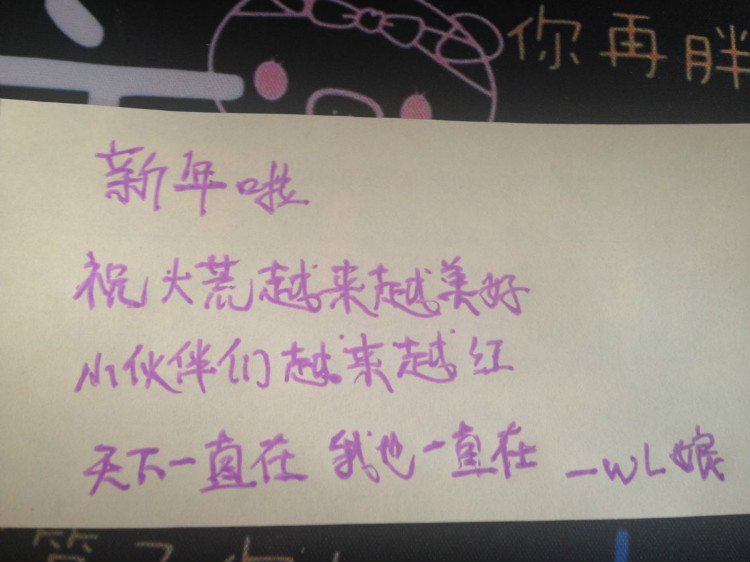 你再胖
新年啦
祝大荒越来越美好
小伙伴们越来越红
天下一直在 我也一直在 —WL娘